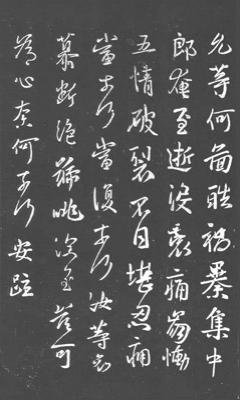 兄等何圖酷禍暴集中
郎奄至逝沒哀痛崩慟
五情破裂不自堪忍痛
當奈何當復奈何汝等哀
慕斷絕號咷深至豈可
爲心奈何奈何安疏